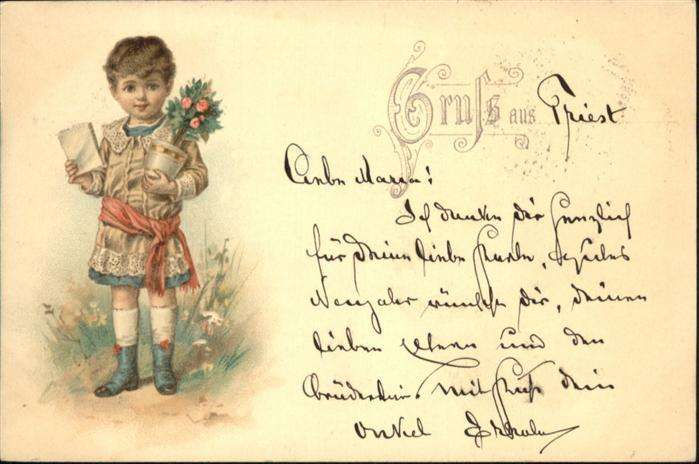 Gruß aus Triest
Liebe Maria!
Ich danke Dir herzlich
für Deine liebe Karte,
Neujahr wünsche Dir, deinen
lieben Eltern und den
mit Kuß dein
onkel